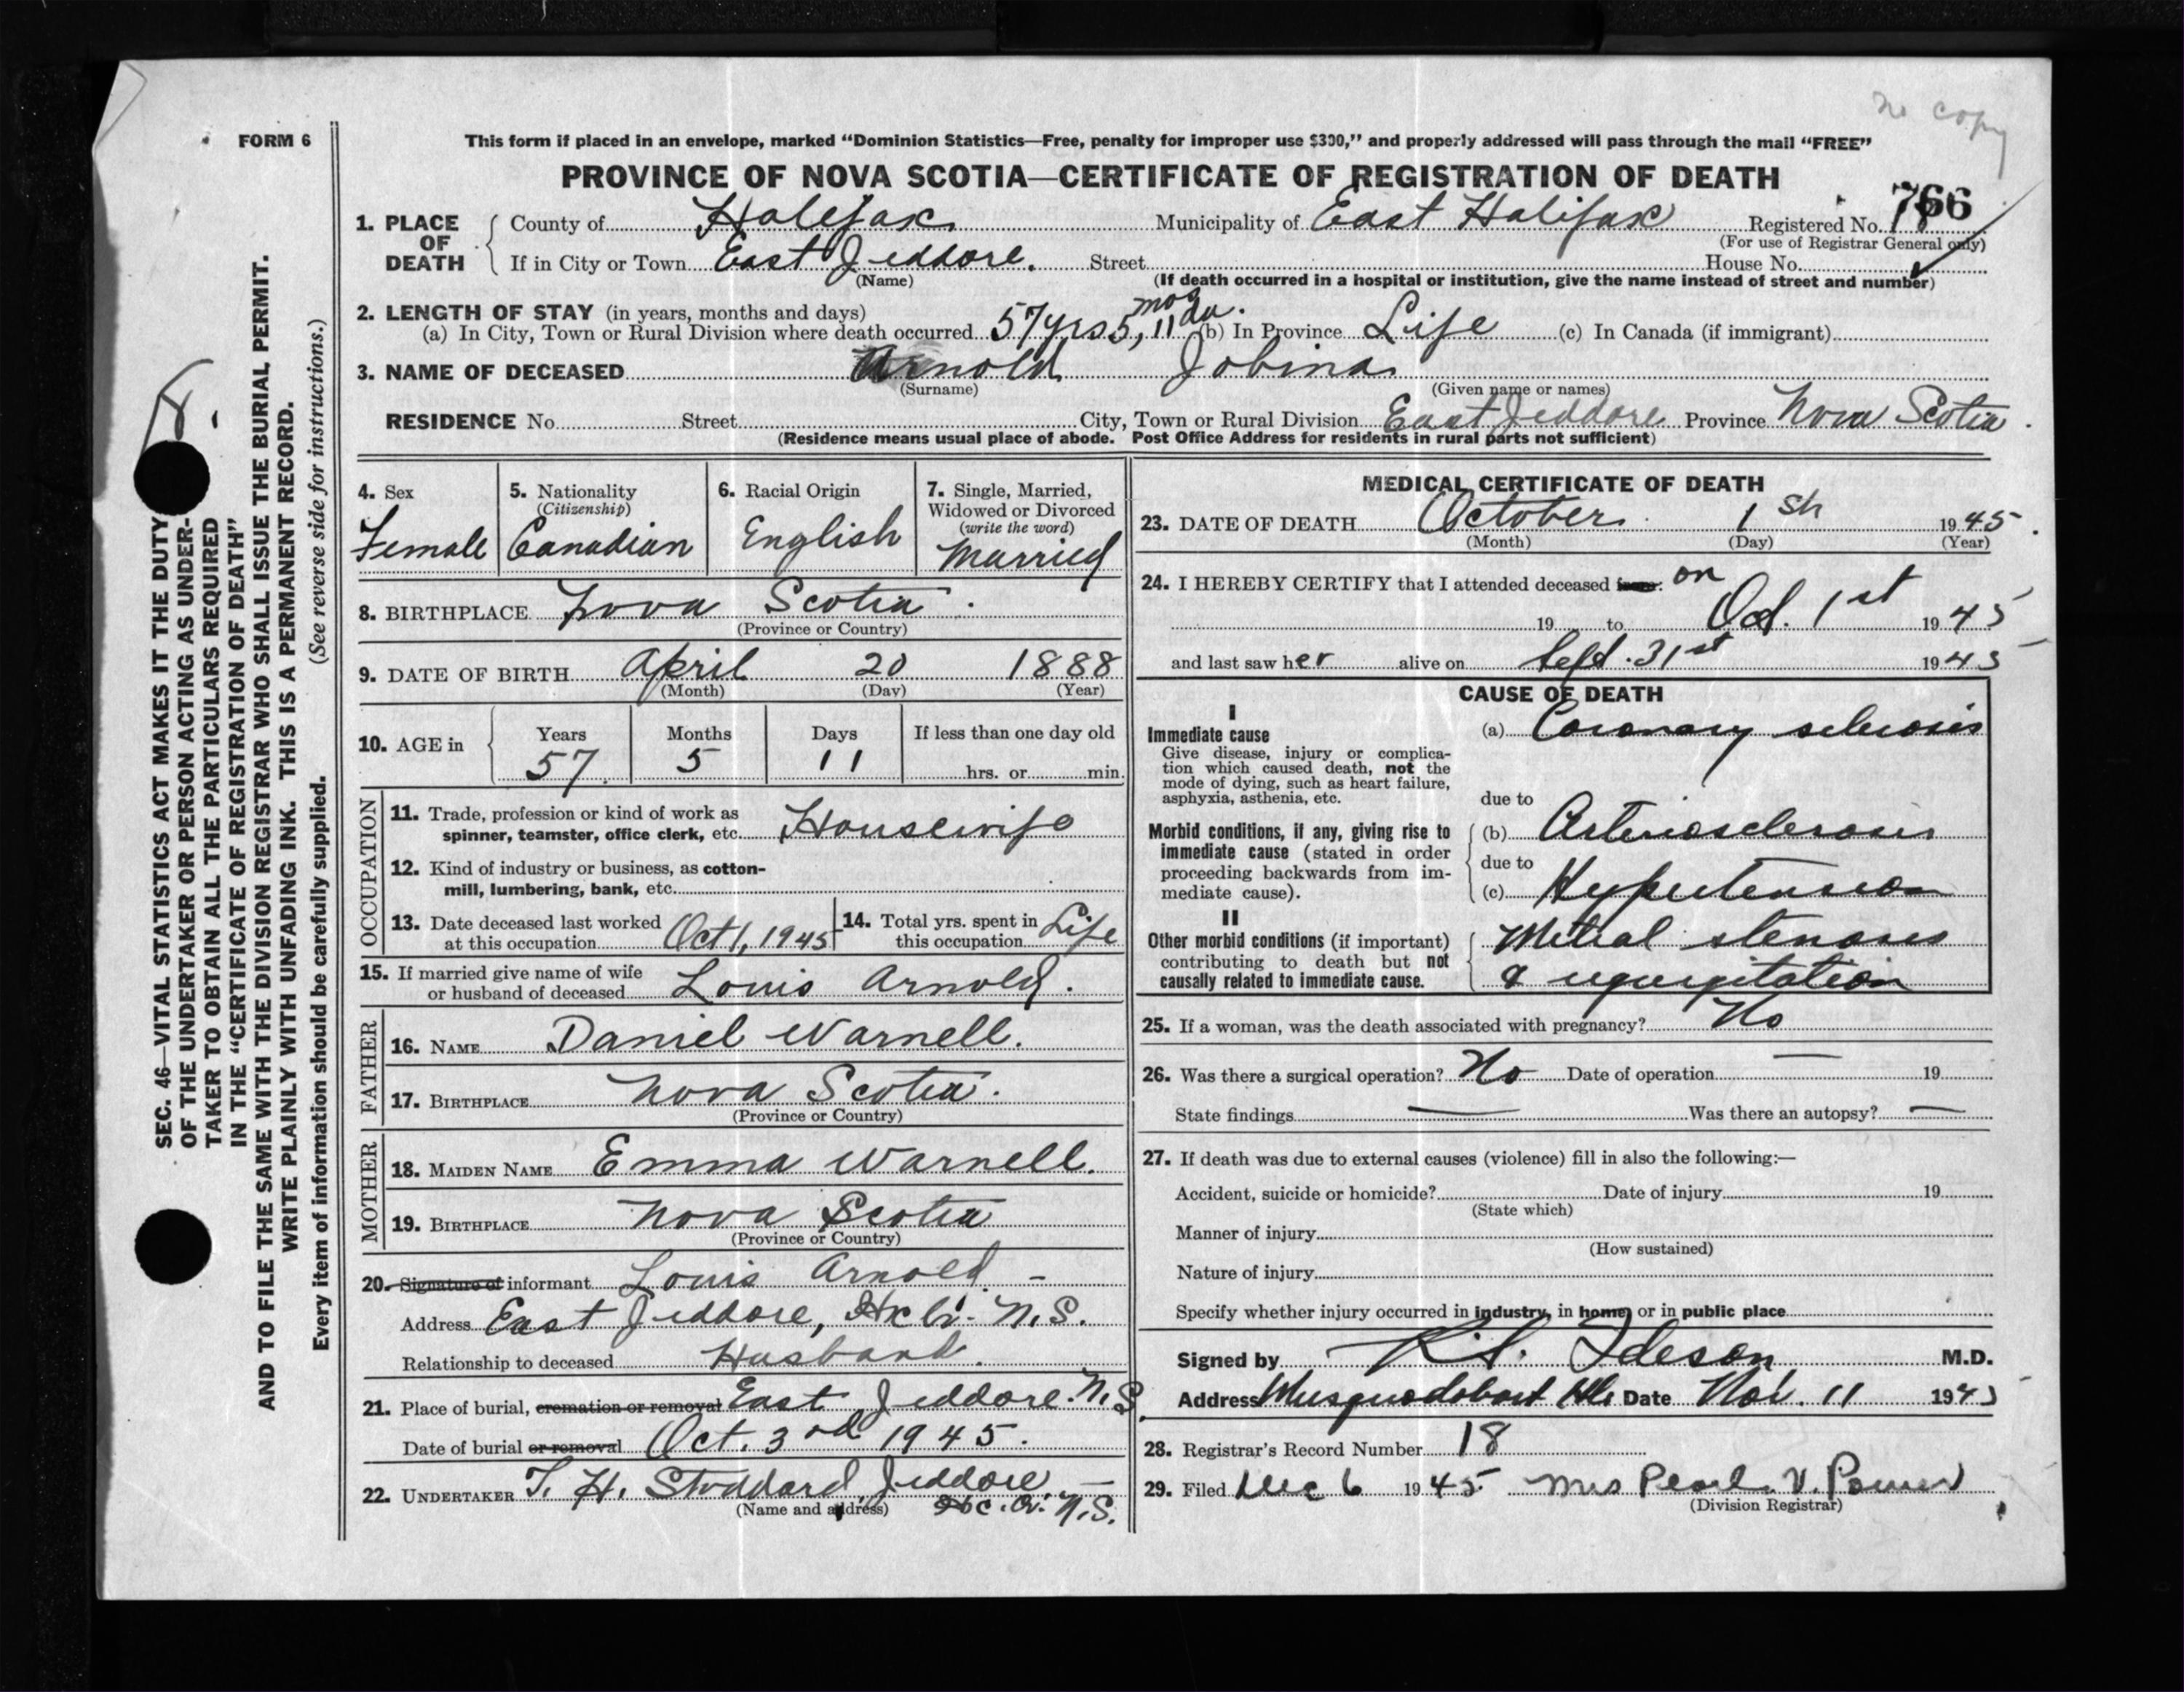 no copy
FORM 6
This form if placed in an envelope, marked "Dominion Statistics—Free, penalty for improper use $300," and properly addressed will pass through the mail "FREE"
PROVINCE OF NOVA SCOTIA—CERTIFICATE OF REGISTRATION OF DEATH
766
1. PLACE OF DEATH County of Halifax Municipality of East Halifax Registered No.
(For use of Registrar General only)
If in City or Town East Jeddore. Street House No.
(Name) (If death occurred in a hospital or institution, give the name instead of street and number)
2. LENGTH OF STAY (in years, months and days)
(a) In City, Town or Rural Division where death occurred 57 yrs 5 mos, 11 da. (b) In Province Life (c) In Canada (if immigrant)
3. NAME OF DECEASED Arnold Jobina
(Surname) (Given name or names)
RESIDENCE No. Street City, Town or Rural Division East Jeddore Province Nova Scotia.
(Residence means usual place of abode. Post Office Address for residents in rural parts not sufficient)
4. Sex
Female
5. Nationality
(Citizenship)
Canadian
6. Racial Origin
English
7. Single, Married,
Widowed or Divorced
(write the word)
Married
8. BIRTHPLACE Nova Scotia.
(Province or Country)
9. DATE OF BIRTH April 20 1888
(Month) (Day) (Year)
10. AGE in Years Months Days If less than one day old
57. 5 11 hrs. or min.
OCCUPATION
11. Trade, profession or kind of work as
spinner, teamster, office clerk, etc. Housewife
12. Kind of industry or business, as cotton-
mill, lumbering, bank, etc.
13. Date deceased last worked
at this occupation Oct 1, 1945
14. Total yrs. spent in
this occupation Life
15. If married give name of wife
or husband of deceased Louis Arnold.
FATHER
16. NAME Daniel Warnell.
17. BIRTHPLACE Nova Scotia.
(Province or Country)
MOTHER
18. MAIDEN NAME Emma Warnell.
19. BIRTHPLACE Nova Scotia
(Province or Country)
20. Signature of informant Louis Arnold. -
Address East Jeddore, Hx Co. N.S.
Relationship to deceased Husband.
21. Place of burial, cremation or removal East Jeddore. N.S.
Date of burial or removal Oct. 3rd 1945.
22. UNDERTAKER T. H. Stoddard, Jeddore,
(Name and address) N.S.
MEDICAL CERTIFICATE OF DEATH
23. DATE OF DEATH October 1st 1945.
(Month) (Day) (Year)
24. I HEREBY CERTIFY that I attended deceased on
19 to Oct. 1st 1945
and last saw her alive on Sept. 31st 1945
CAUSE OF DEATH
I
Immediate cause
Give disease, injury or complica-
tion which caused death, not the
mode of dying, such as heart failure,
asphyxia, asthenia, etc.
(a) Coronary sclerosis
due to
Morbid conditions, if any, giving rise to
immediate cause (stated in order
proceeding backwards from im-
mediate cause).
(b) Arteriosclerosis
due to
(c) Hypertension
II
Other morbid conditions (if important)
contributing to death but not
causally related to immediate cause.
Mitral stenosis
& regurgitation
25. If a woman, was the death associated with pregnancy? No
26. Was there a surgical operation? No Date of operation — 19
State findings — Was there an autopsy? —
27. If death was due to external causes (violence) fill in also the following:—
Accident, suicide or homicide? Date of injury 19
(State which)
Manner of injury
(How sustained)
Nature of injury
Specify whether injury occurred in industry, in home, or in public place
Signed by Ideson M.D.
Address Musquodoboit Date Nov. 11 1945
28. Registrar's Record Number 18
29. Filed Dec 6 1945 Mrs Pearl V. Power
(Division Registrar)
SEC. 46—VITAL STATISTICS ACT MAKES IT THE DUTY
OF THE UNDERTAKER OR PERSON ACTING AS UNDER-
TAKER TO OBTAIN ALL THE PARTICULARS REQUIRED
IN THE "CERTIFICATE OF REGISTRATION OF DEATH"
AND TO FILE THE SAME WITH THE DIVISION REGISTRAR WHO SHALL ISSUE THE BURIAL PERMIT.
WRITE PLAINLY WITH UNFADING INK. THIS IS A PERMANENT RECORD.
Every item of information should be carefully supplied. (See reverse side for instructions.)